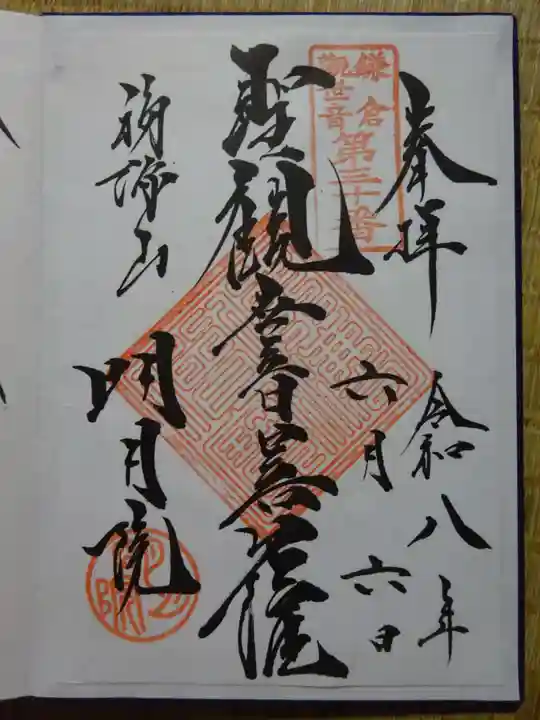 奉拝
令和八年
六月六日
鎌倉
観世音
第三十番
聖観世音菩薩
福源山
明月院